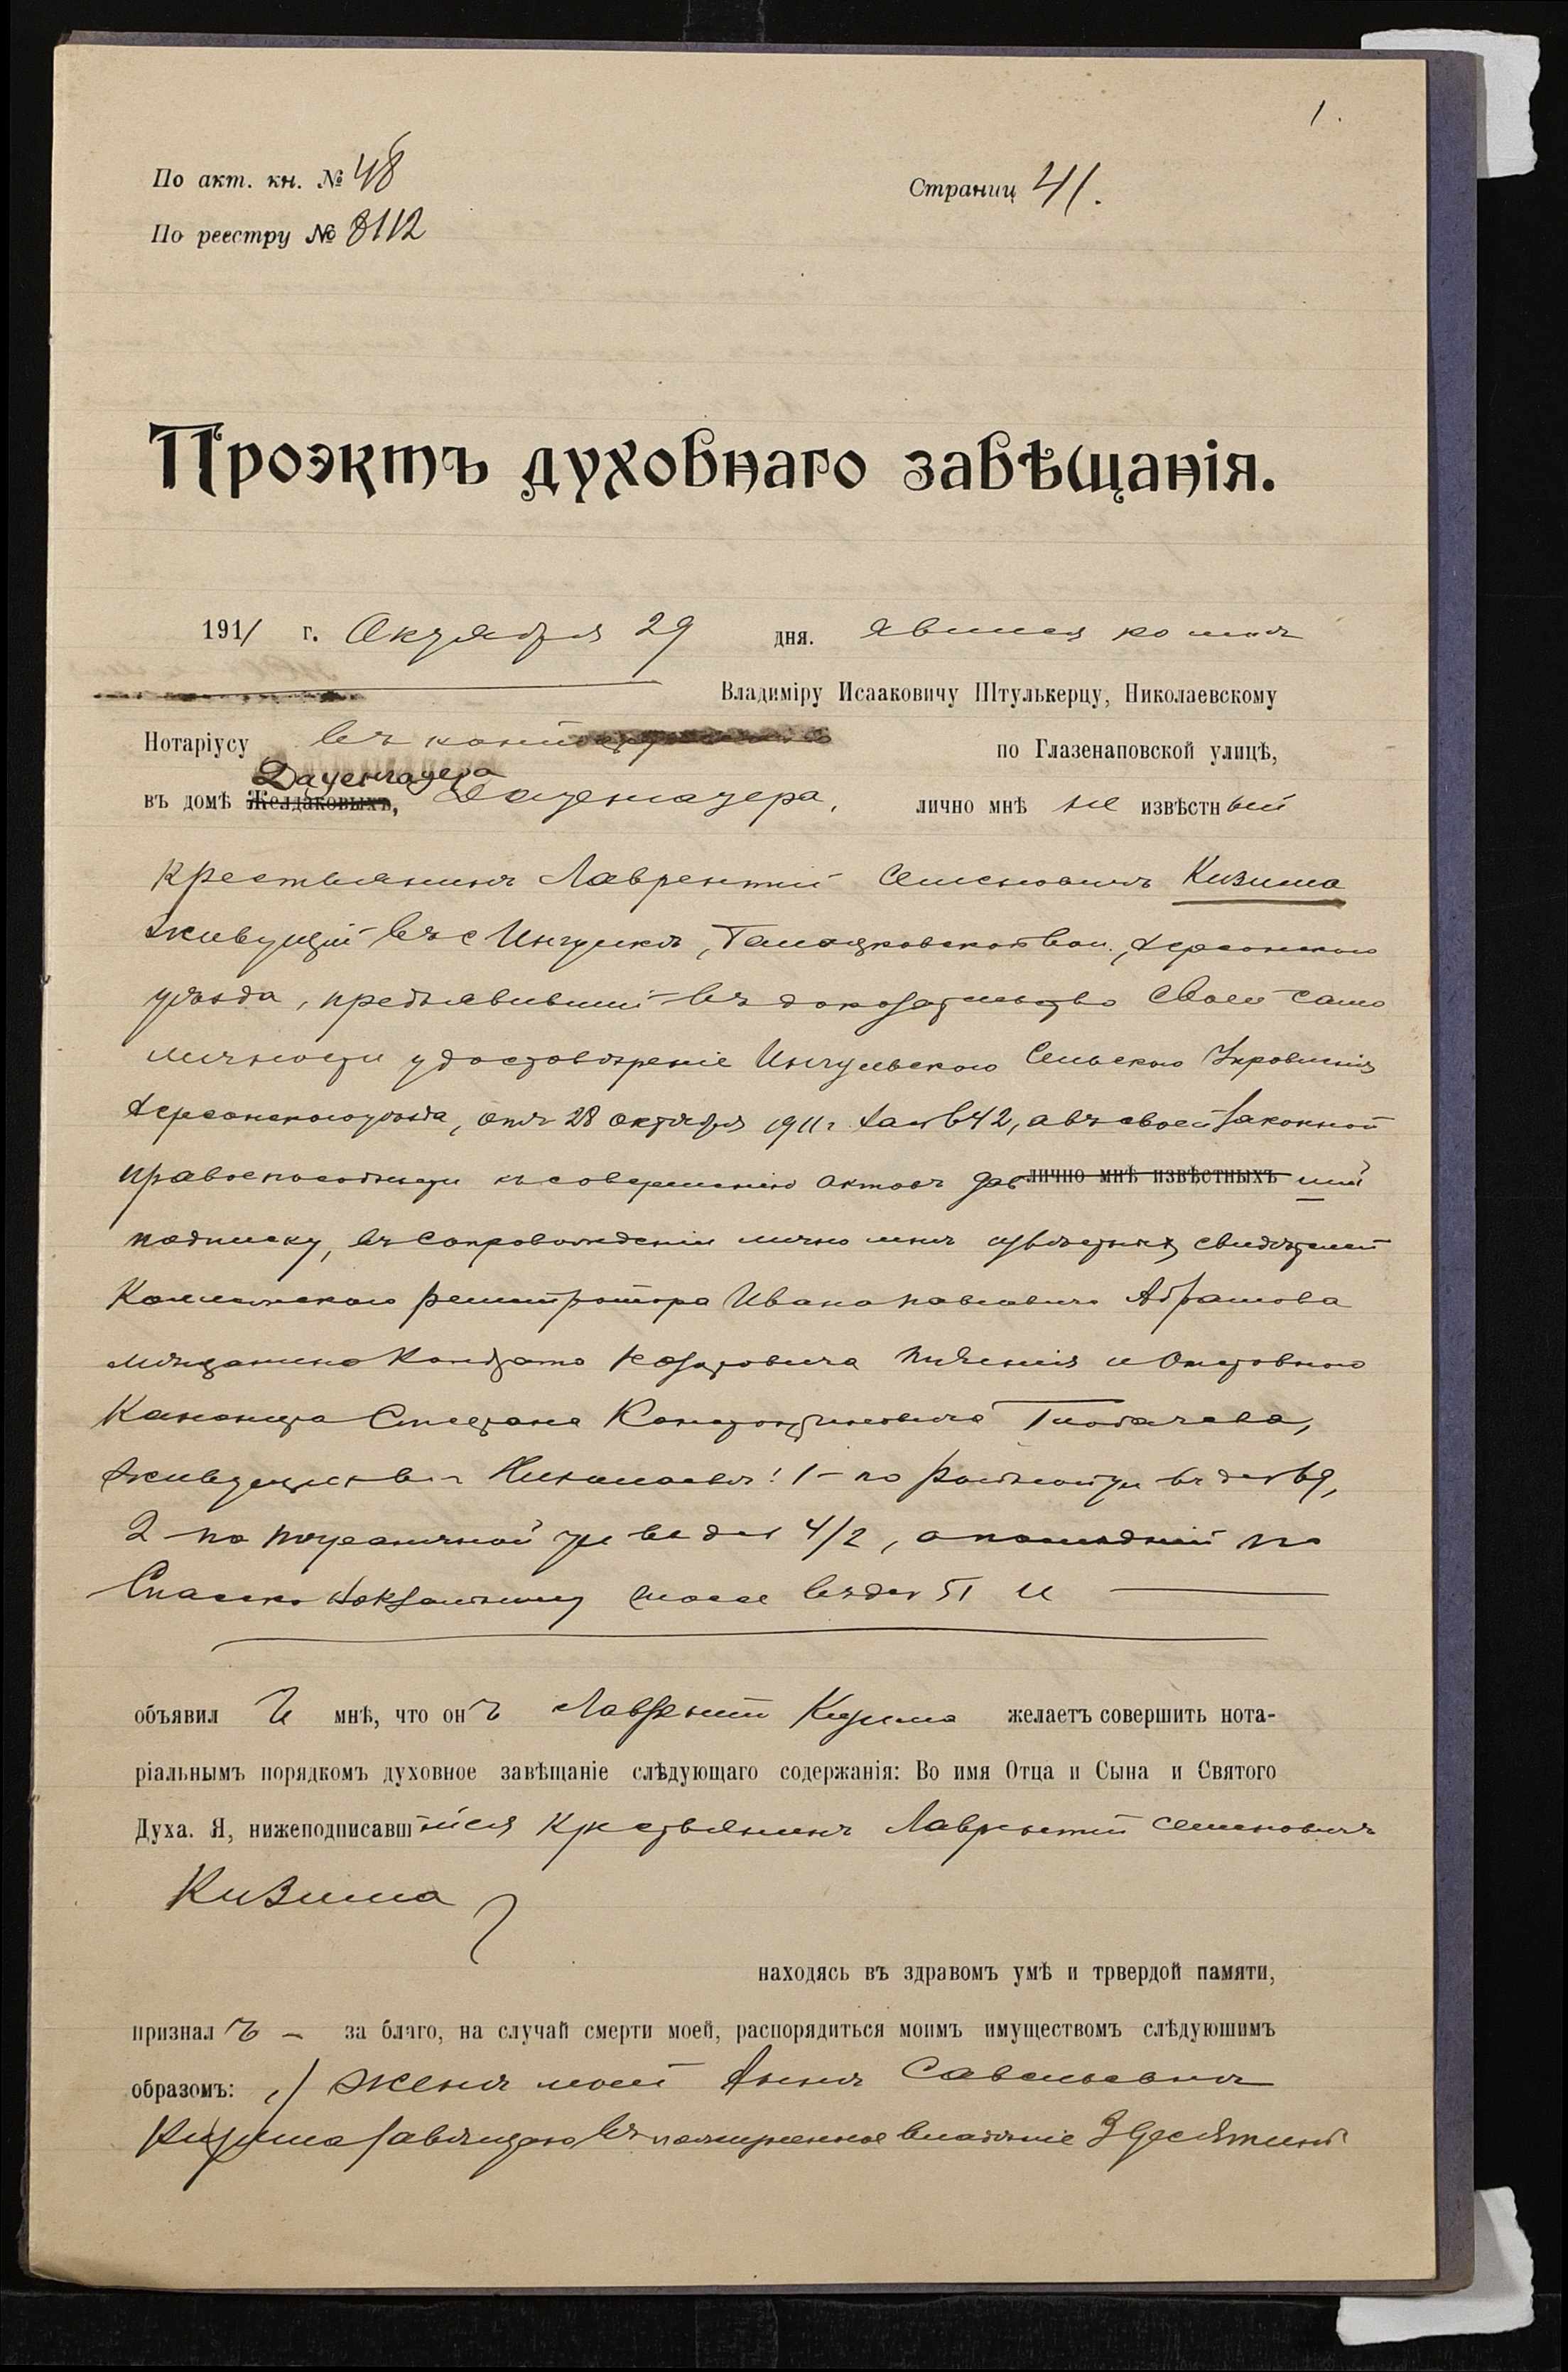 1.
По акт. кн. № 48
Страниц 41.
По реестру № 3112
Проэктъ духовнаго завѣщанія.
1911 г. Октября 29 дня. явился ко мнѣ
Владиміру Исааковичу Штулькерцу, Николаевскому
Нотаріусу въ по Глазенаповской улицѣ,
Даценгадера
въ домѣ Желдаковыхъ, лично мнѣ не извѣстный
крестьянинъ Лаврентій Семеновичъ Кизима
живущій въ с Ингулкѣ, вол., Херсонскаго
уѣзда, предъявившій въ доказательство своей само
личности удостовѣреніе Ингульскаго Сельскаго Управленія
Херсонскаго уѣзда, отъ 28 октября 1911 г. за № 642, а въ своей законной
правоспособности къ совершенію актовъ дав лично мнѣ извѣстныхъ шій
подписку, въ сопровожденіи лично мнѣ извѣстныхъ свидѣтелей
Коллежскаго регистратора Ивана Павловича Абрамова
мѣщанина Кондрата и Отставного
Степана Константиновича
живущихъ въ г Николаевѣ: 1 - по въ д № 69,
2 - по Пограничной ул въ д № 4/2, а послѣдній по
Спасско Вокзальному въ д № 51 и
объявилъ мнѣ, что онъ Лаврентій Кизима желаетъ совершить нота-
ріальнымъ порядкомъ духовное завѣщаніе слѣдующаго содержанія: Во имя Отца и Сына и Святого
Духа. Я, нижеподписавшійся крестьянинъ Лаврентій Семеновичъ
Кизима
находясь въ здравомъ умѣ и трвердой памяти,
призналъ - за благо, на случай смерти моей, распорядиться моимъ имуществомъ слѣдуюшимъ
образомъ: 1) женѣ моей Аннѣ Савельевнѣ
Кизима завѣщаю въ пожизненное владѣніе 3 десятины